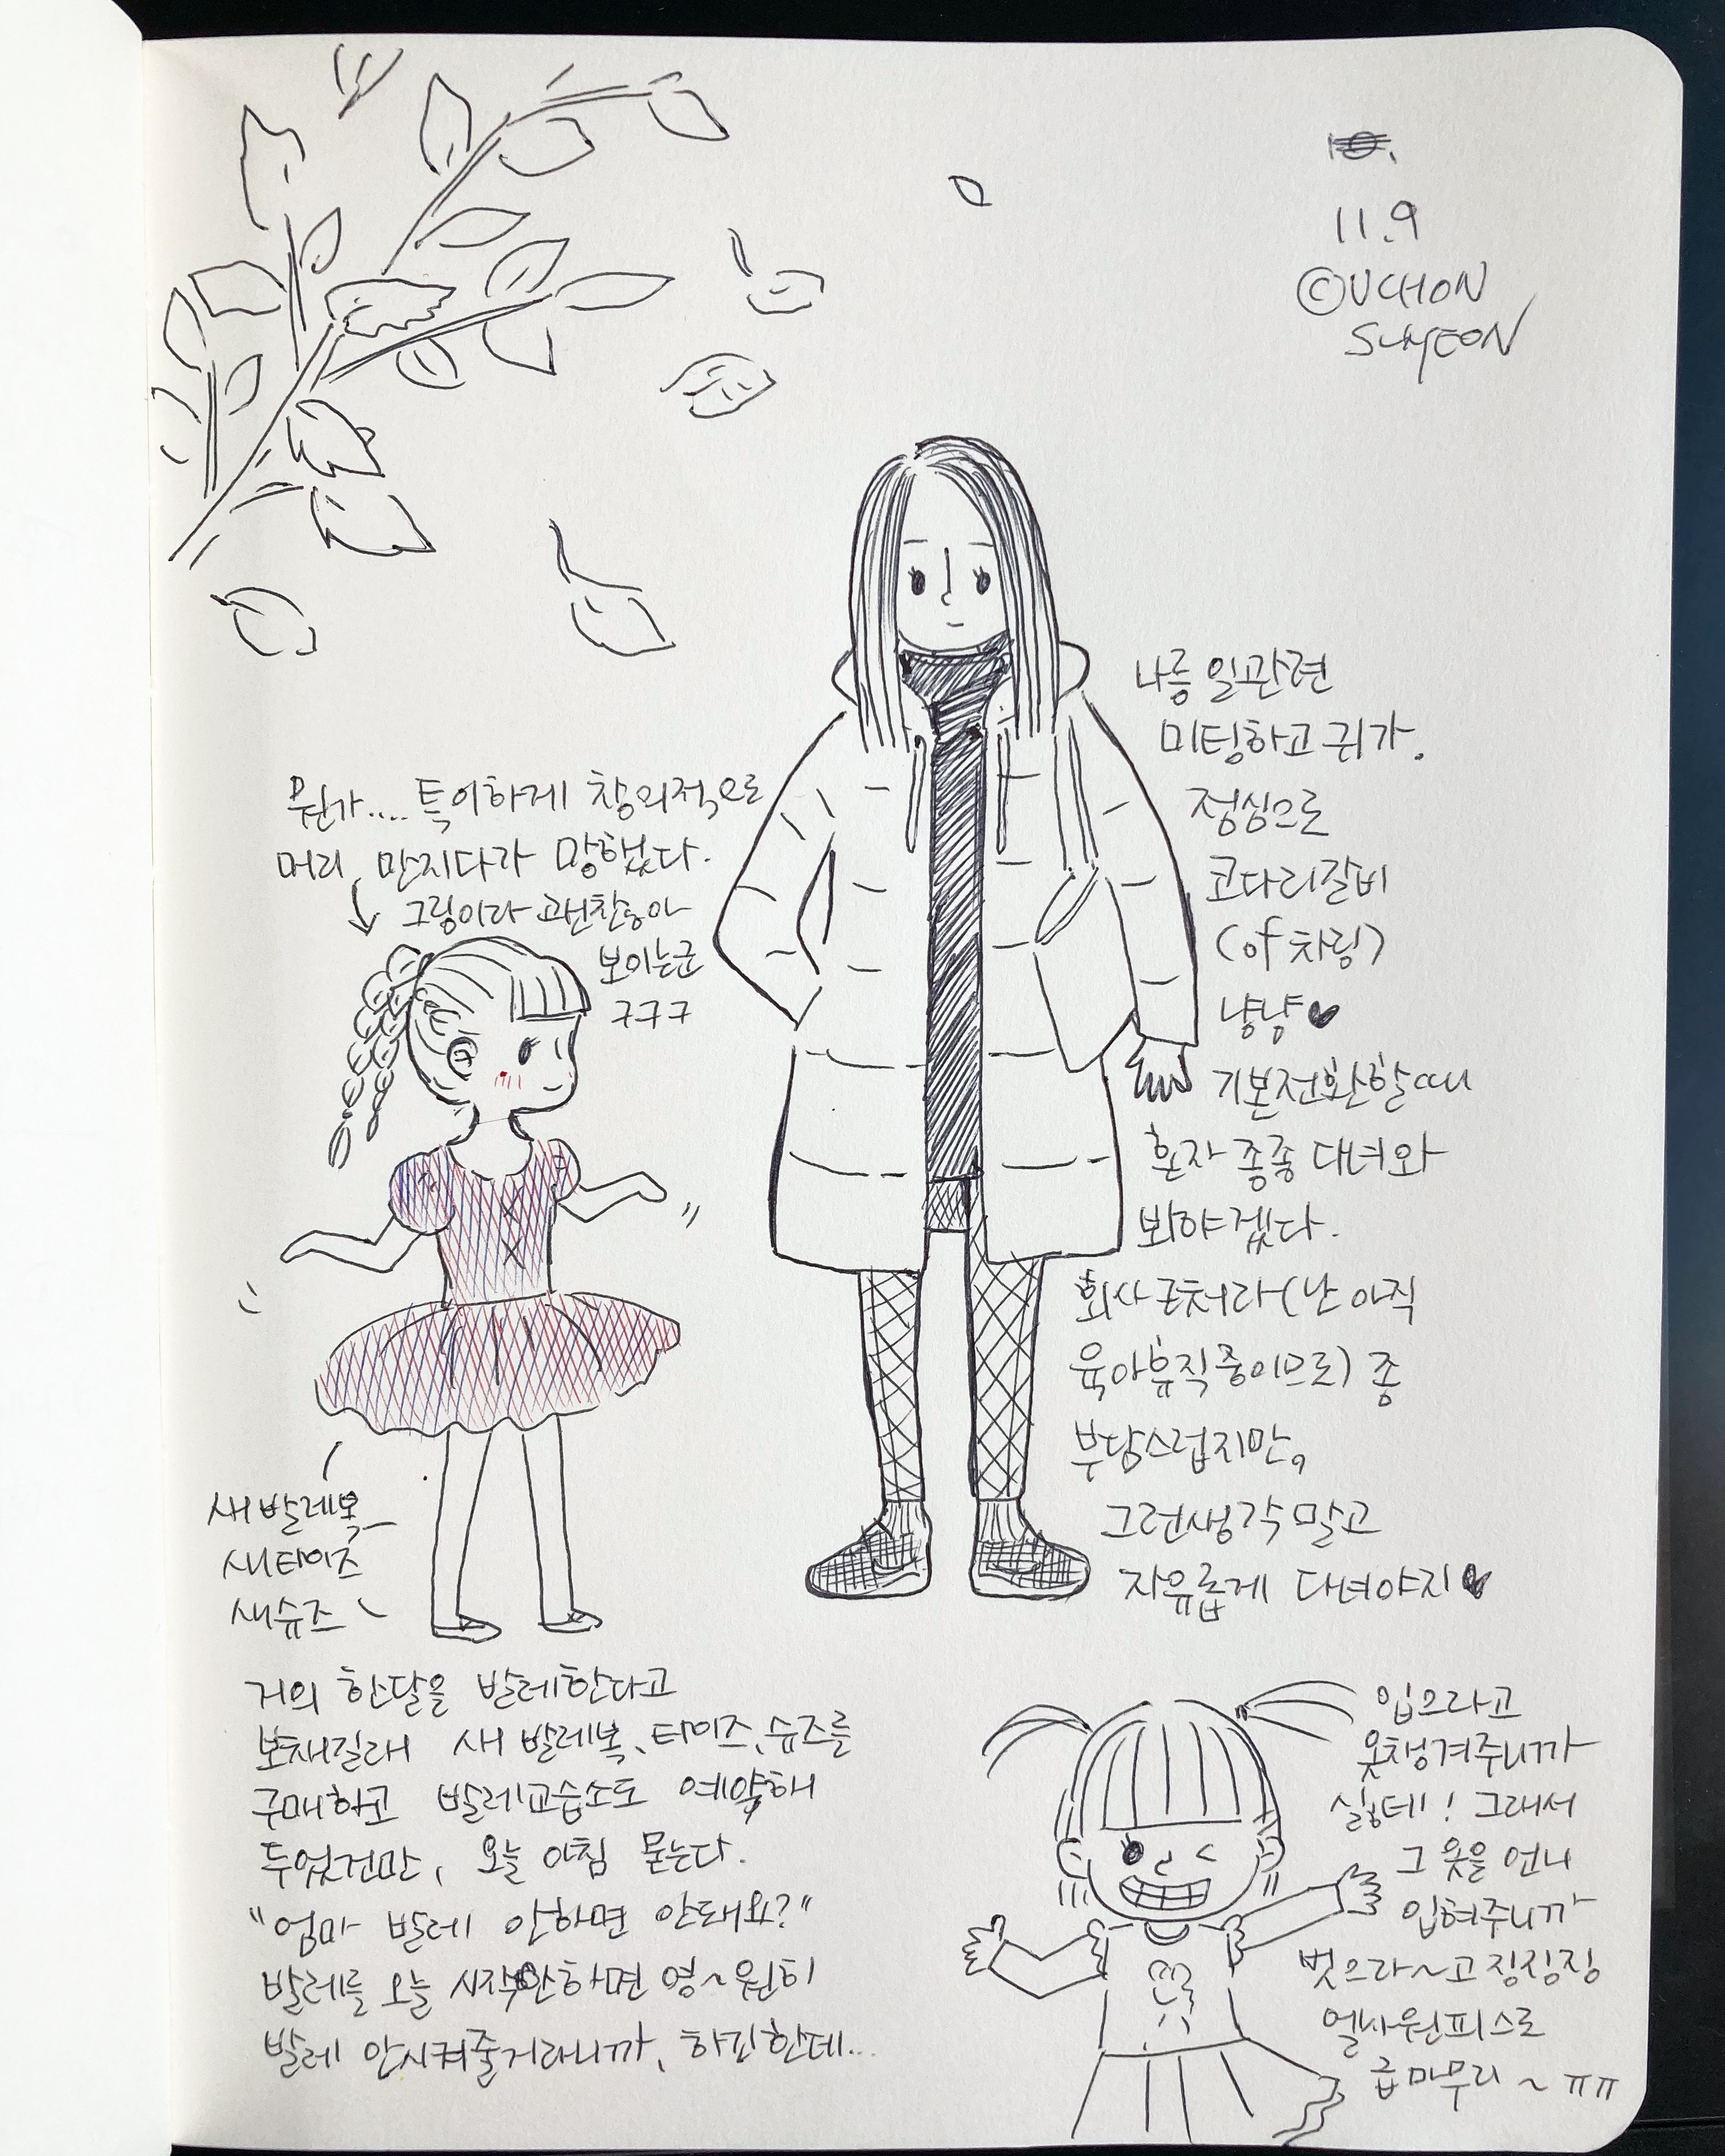 11.9
©UCHON
SUYEON
나름 일관련
미팅하고 귀가.
점심으로
코다리갈비
(of 차림)
냠냠♥
기본전환할 때
혼자 종종 다녀와
봐야겠다.
회사 근처라 (난 아직
육아휴직중이므로) 좀
부담스럽지만,
그런생각 말고
자유롭게 다녀야지♥
뭔가.... 특이하게 창의적으로
머리 만지다가 망했다.
그림이라 괜찮아
보이는군
ㅋㅋㅋ
새 발레복
새타이즈
새슈즈
거의 한달을 발레한다고
보채길래 새 발레복, 타이즈, 슈즈를
구매하고 발레교습소도 예약해
두었건만, 오늘 아침 묻는다.
"엄마 발레 안하면 안돼요?"
발레를 오늘 시작안하면 영~원히
발레 안시켜줄거라니까, 하긴한데...
입으라고
옷챙겨주니까
싫데! 그래서
그 옷을 언니
입혀주니까
벗으라~고 징징징
엘사원피스로
급마무리~ ㅠㅠ